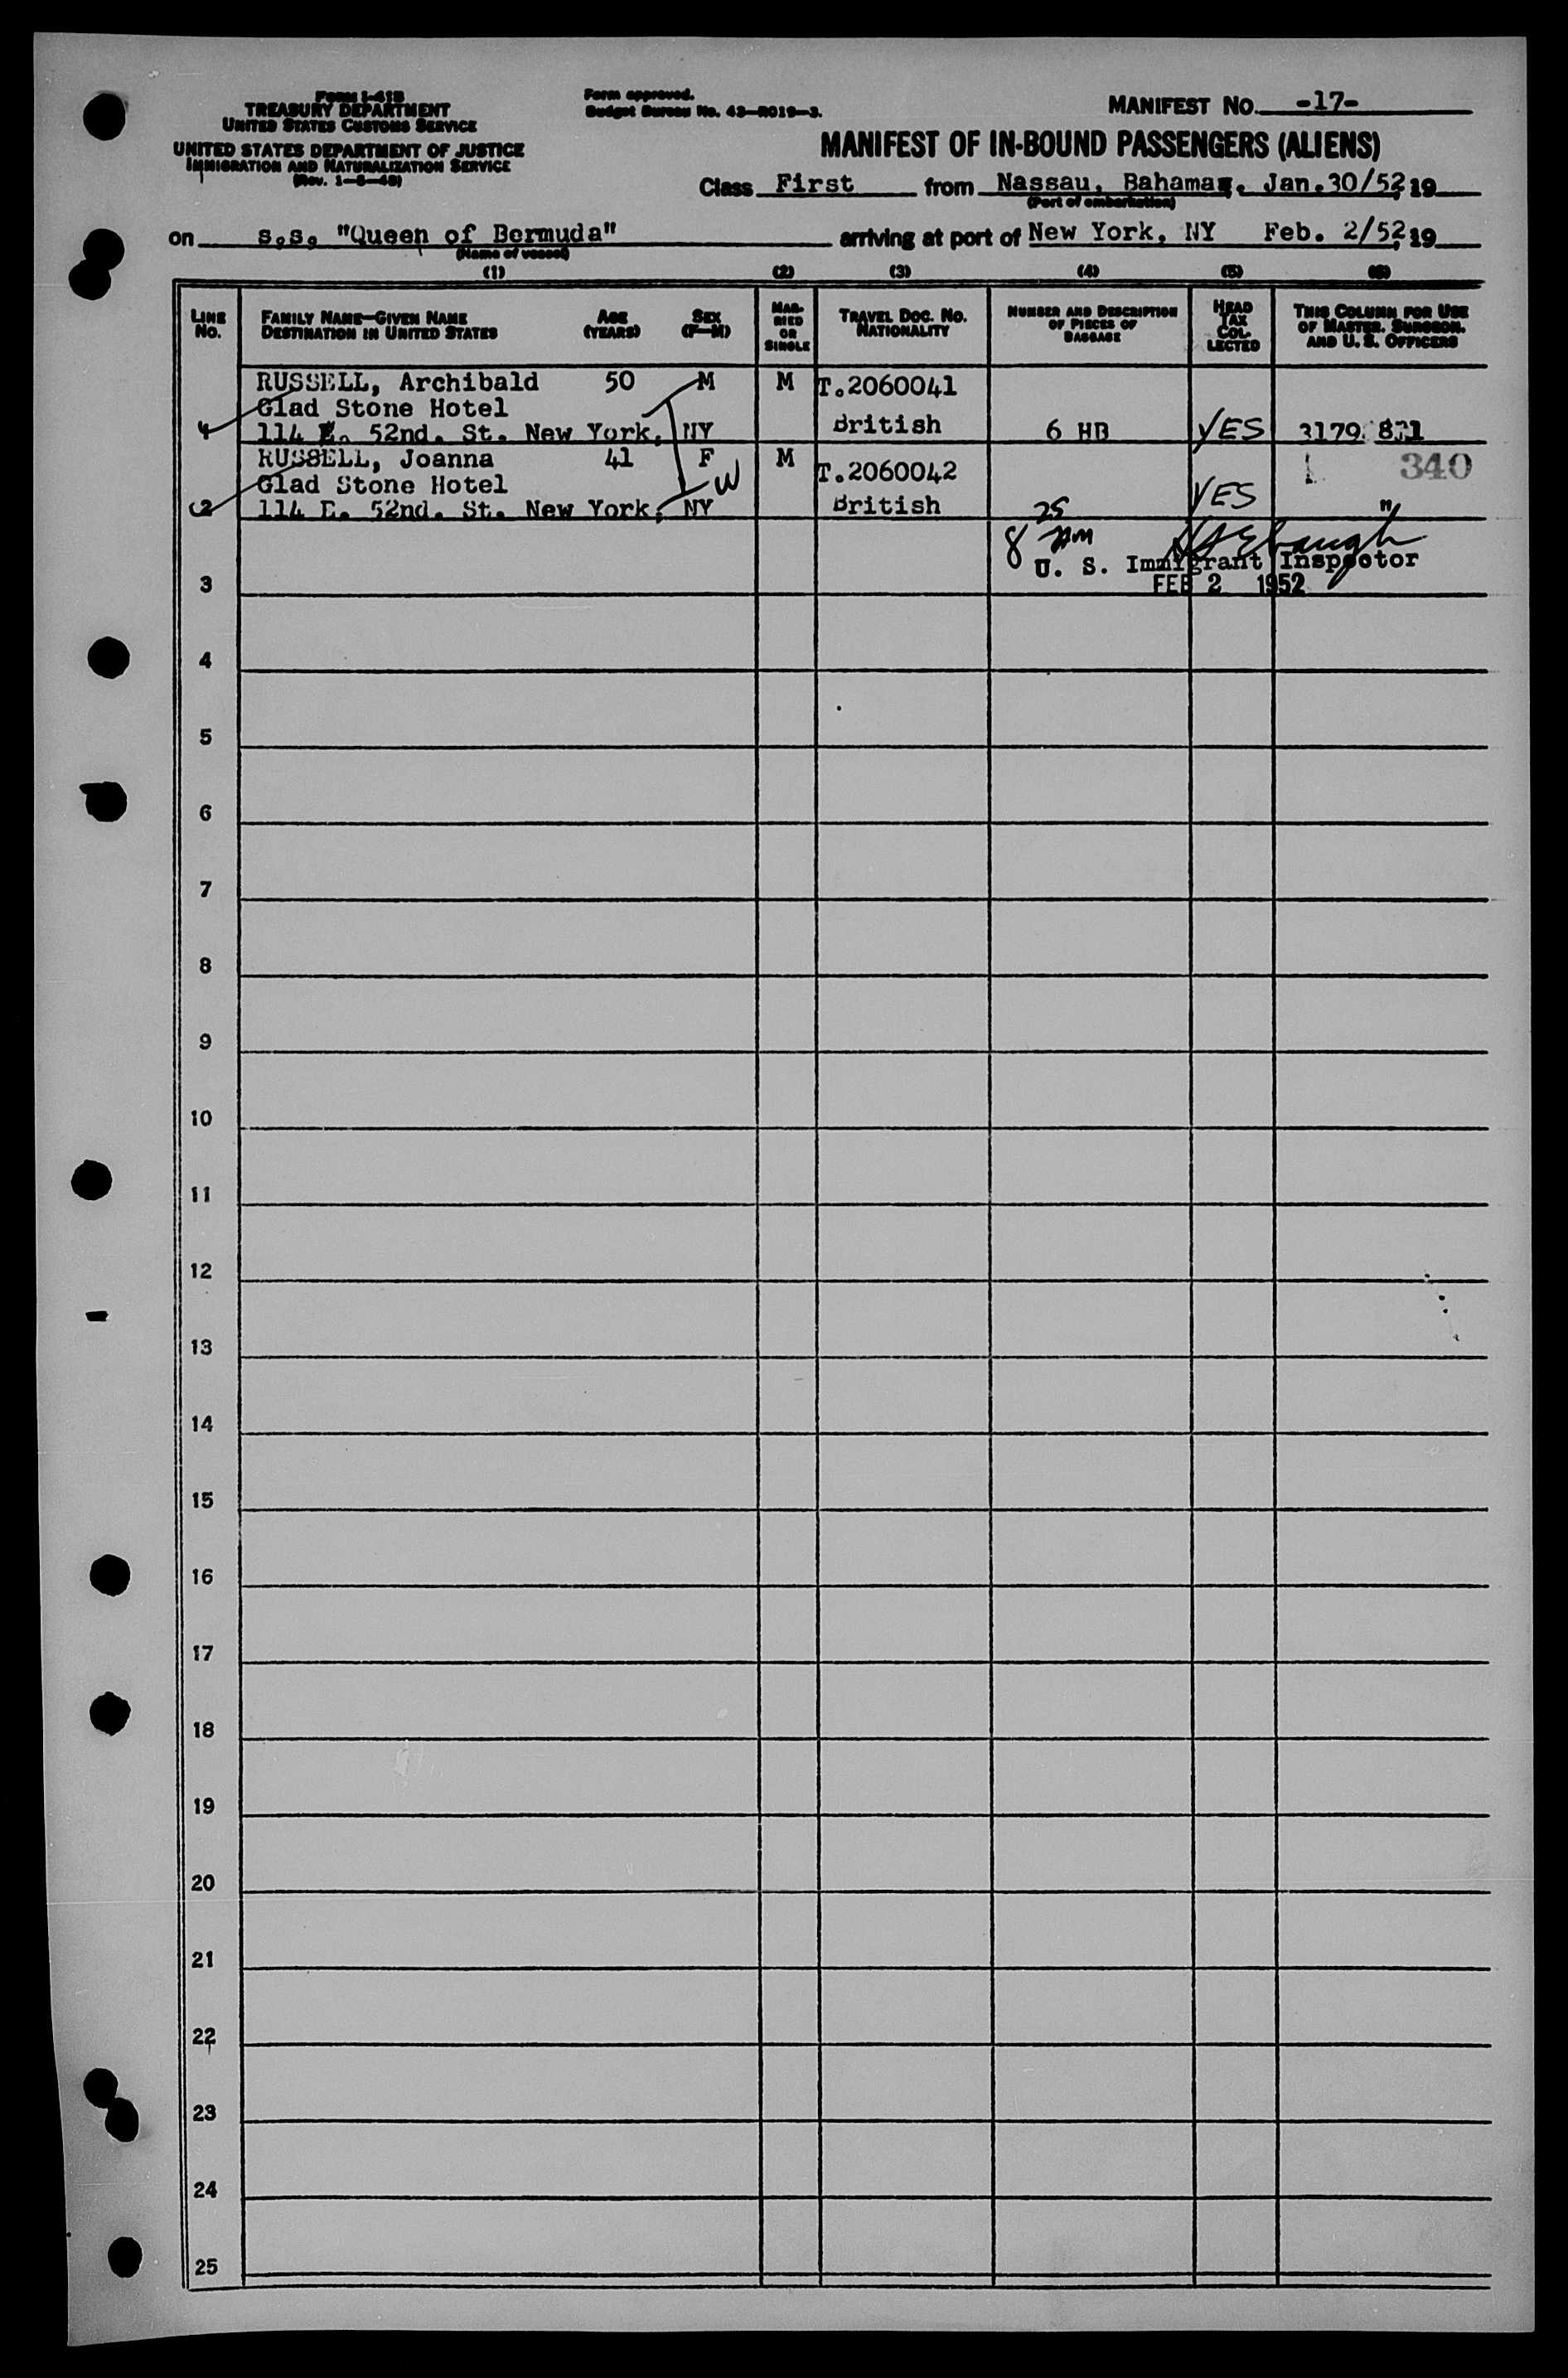 Form I-41B
TREASURY DEPARTMENT
UNITED STATES CUSTOMS SERVICE
UNITED STATES DEPARTMENT OF JUSTICE
IMMIGRATION AND NATURALIZATION SERVICE
(Rev. 1-5-48)
Form approved.
Budget Bureau No. 43-R019-3.
MANIFEST NO. -17-
MANIFEST OF IN-BOUND PASSENGERS (ALIENS)
Class First from Nassau, Bahamas, Jan.30/52, 19
(Port of embarkation)
on s.s. "Queen of Bermuda" arriving at port of New York, NY Feb. 2/52, 19
(Name of vessel)
(1) (2) (3) (4) (5) (6)
LINE NO.
FAMILY NAME—GIVEN NAME AGE SEX
DESTINATION IN UNITED STATES (YEARS) (F—M)
MARRIED OR SINGLE
TRAVEL DOC. NO.
NATIONALITY
NUMBER AND DESCRIPTION
OF PIECES OF
BAGGAGE
HEAD
TAX
COL-
LECTED
THIS COLUMN FOR USE
OF MASTER, SURGEON,
AND U. S. OFFICERS
RUSSELL, Archibald 50 M M T.2060041
Glad Stone Hotel
114 E. 52nd. St. New York, NY British 6 HB YES 3179
RUSSELL, Joanna 41 F M T.2060042 340
Glad Stone Hotel W
2 114 E. 52nd. St. New York, NY British 25 YES "
8
U. S. Immigrant Inspector
FEB 2 1952
3
4
5
6
7
8
9
10
11
12
13
14
15
16
17
18
19
20
21
22
23
24
25